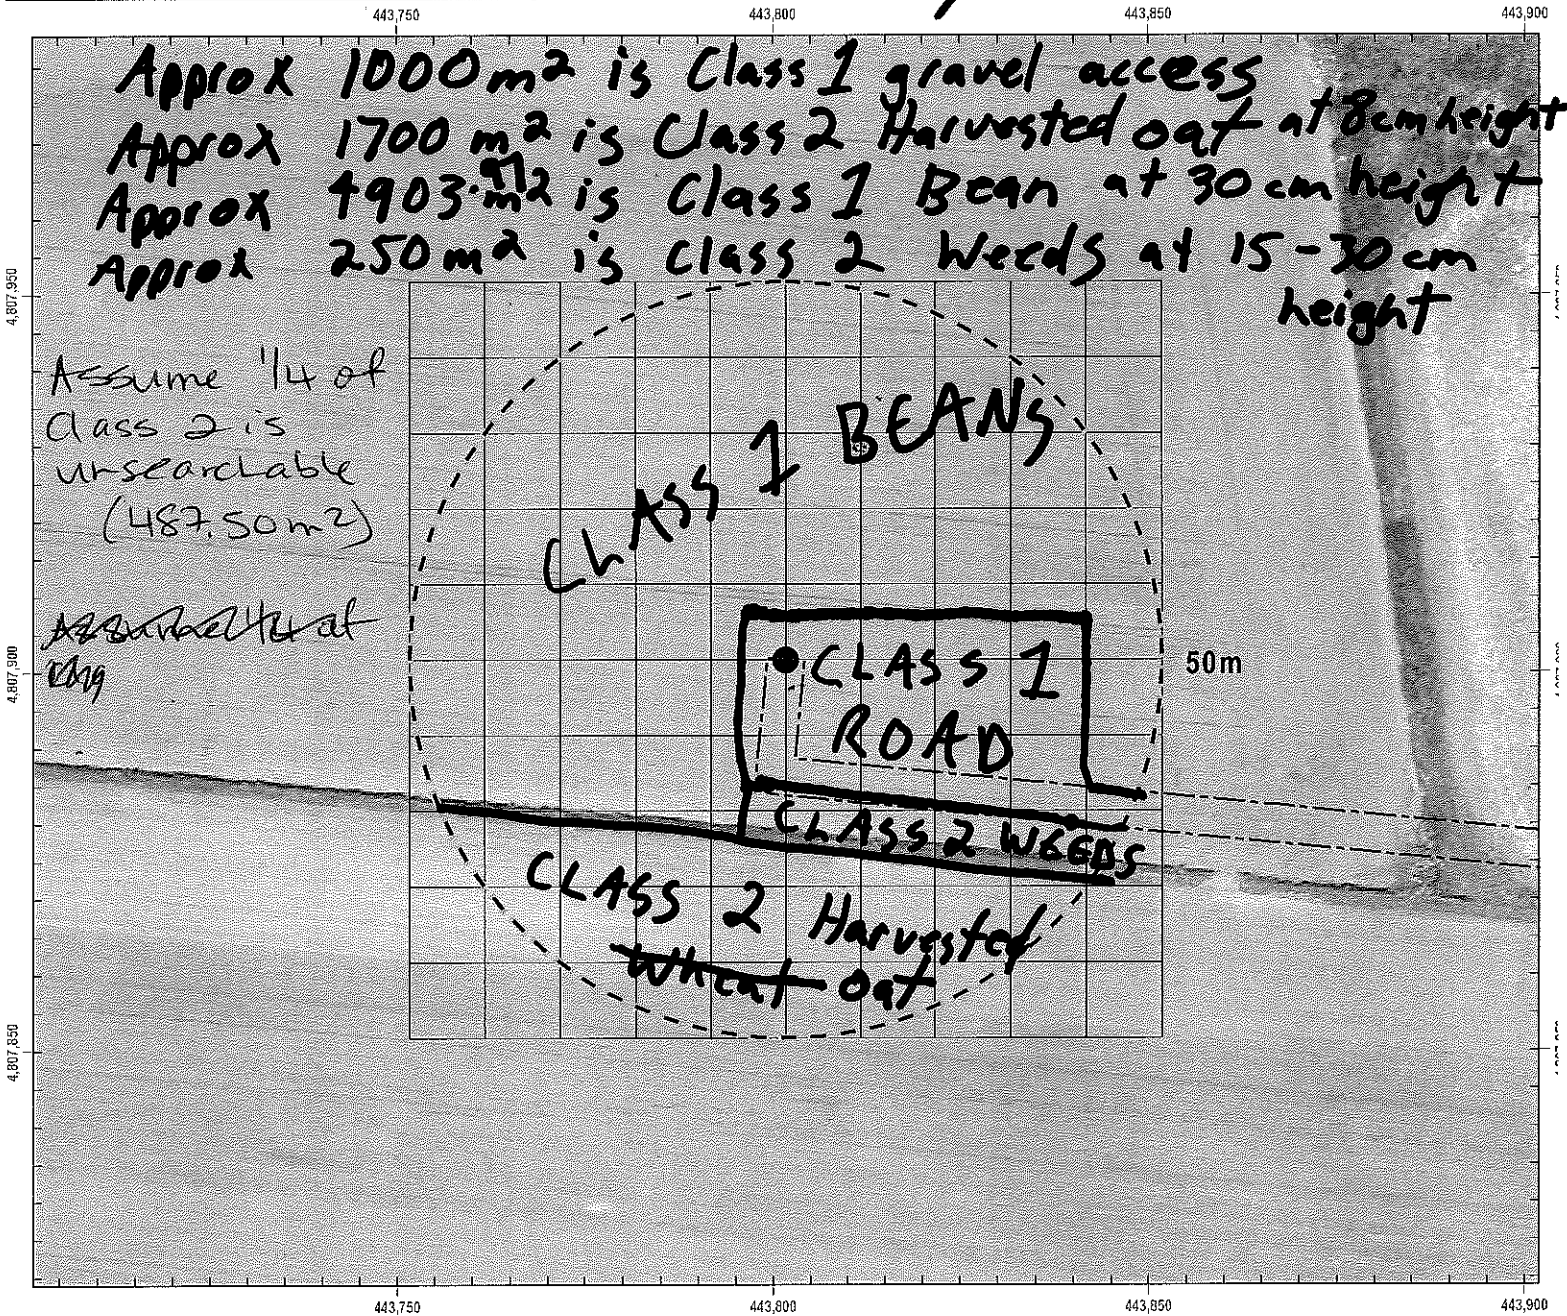 443,750 443,800 443,850 443,900
Approx 1000 m² is Class 1 gravel access
Approx 1700 m² is Class 2 Harvested oat at 8cm height
Approx 4903.91 m² is Class 1 Bean at 30 cm height
Approx 250 m² is Class 2 Weeds at 15-30 cm
height
4,807,950
Assume 1/4 of
Class 2 is
unsearchable
(487.50 m²)
CLASS 1 BEANS
Assume 1/4 of
4,807,900
CLASS 1
ROAD
50m
CLASS 2 WEEDS
CLASS 2 Harvested
Wheat oat
4,807,850
443,750 443,800 443,850 443,900